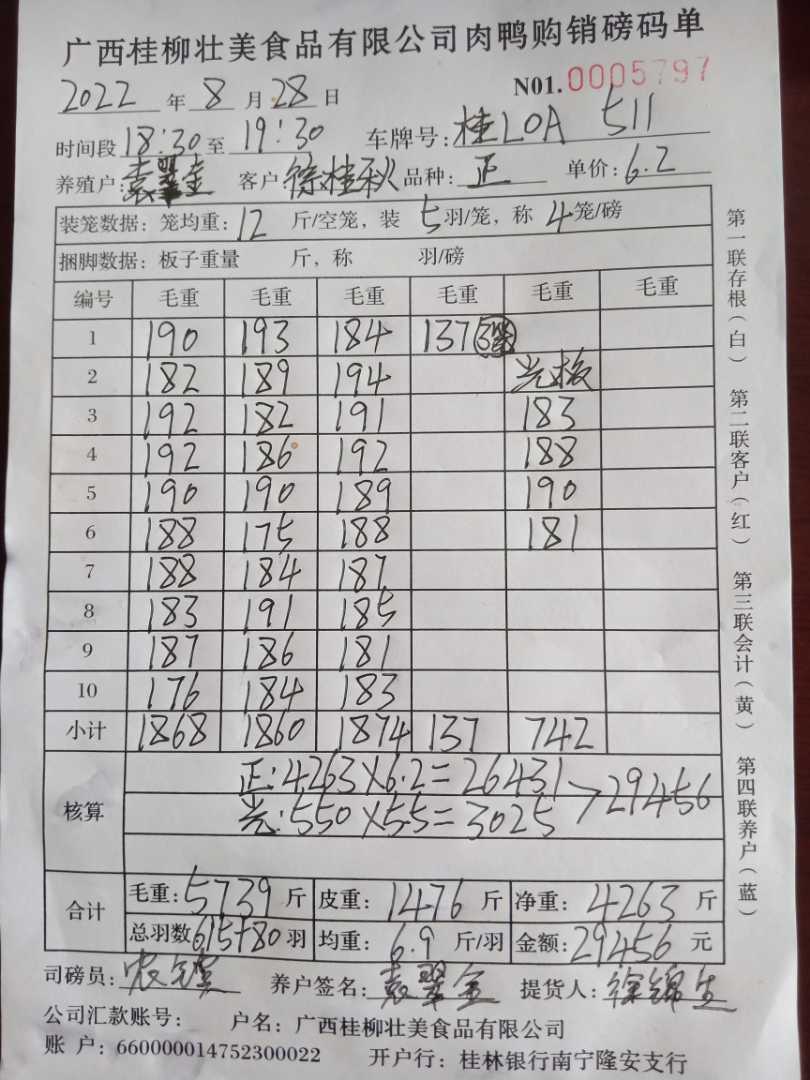 广西桂柳壮美食品有限公司肉鸭购销磅码单
2022 年 8 月 28 日 N01.0005797
时间段 18:30 至 19:30 车牌号: 桂L0A 511
养殖户: 袁翠金 客户 徐桂秋 品种: 正 单价: 6.2
装笼数据: 笼均重: 12 斤/空笼, 装 5 羽/笼, 称 4 笼/磅
捆脚数据: 板子重量 斤, 称 羽/磅
编号 毛重 毛重 毛重 毛重 毛重 毛重
1 190 193 184 137
2 182 189 194 光板
3 192 182 191 183
4 192 186 192 188
5 190 190 189 190
6 188 175 188 181
7 188 184 187
8 183 191 185
9 187 186 181
10 176 184 183
小计 1868 1860 1874 137 742
核算
正:4263×6.2=26431
光:550×5.5=3025
>29456
合计
毛重: 5739 斤 皮重: 1476 斤 净重: 4263 斤
总羽数 615+80 羽 均重: 6.9 斤/羽 金额: 29456 元
司磅员: 养户签名: 袁翠金 提货人: 徐锦生
公司汇款账号: 户名: 广西桂柳壮美食品有限公司
账 户: 660000014752300022 开户行: 桂林银行南宁隆安支行
第一联存根(白) 第二联客户(红) 第三联会计(黄) 第四联养户(蓝)